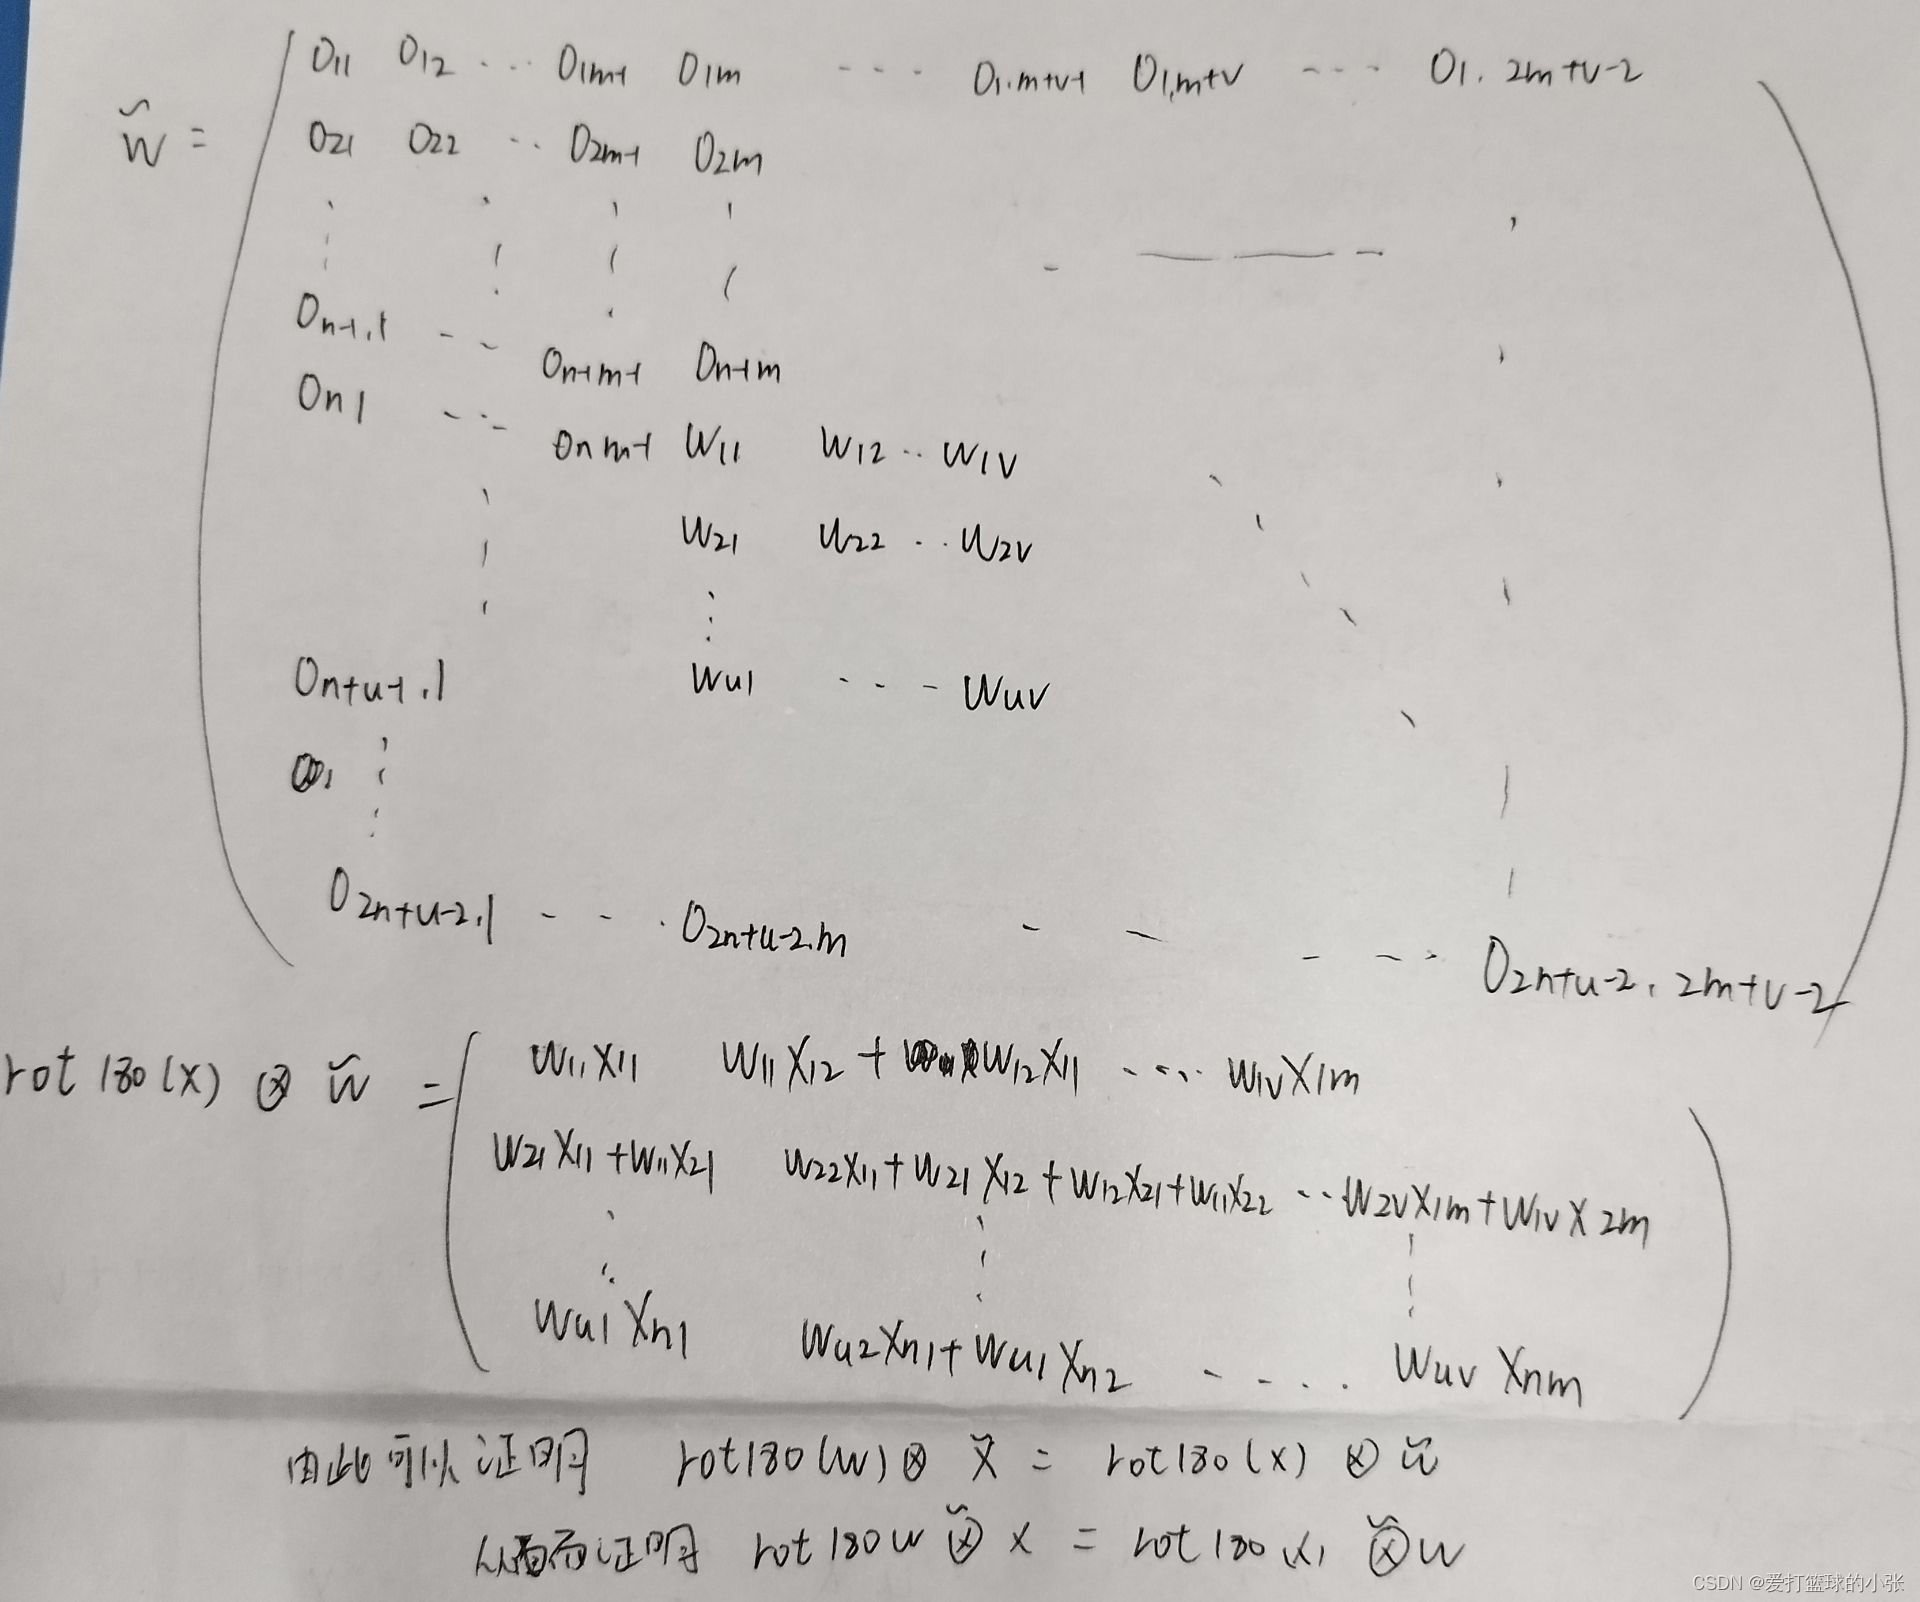 w̃ = ( 0₁₁ 0₁₂ ··· 0₁ₘ₋₁ 0₁ₘ ---- 0₁.ₘ₊ᵥ₋₁ 0₁,ₘ₊ᵥ ---- 0₁. 2m+v-2
0₂₁ 0₂₂ ·· 0₂ₘ₋₁ 0₂ₘ
0n-1.1 -- 0n-1m-1 0n-1m
0n1 --- 0nm-1 w₁₁ w₁₂ ·· w₁ᵥ
w₂₁ w₂₂ ·· w₂ᵥ
0n+u-1.1 wu1 --- wuv
02n+u-2.1 --· 02n+u-2.m -- --- 02n+u-2, 2m+v-2 )
rot180(x) ⊗ w̃ = ( w₁₁x₁₁ w₁₁x₁₂ + w₁₂x₁₁ ---- w₁ᵥx₁ₘ
w₂₁x₁₁ + w₁₁x₂₁ w₂₂x₁₁ + w₂₁x₁₂ + w₁₂x₂₁ + w₁₁x₂₂ ·· w₂ᵥx₁ₘ + w₁ᵥx₂ₘ
wu1xn1 wu2xn1 + wu1xn2 ---- wuvxnm )
由此可以证明 rot180(w) ⊗ x̃ = rot180(x) ⊗ w̃
从而证明 rot180w ⊗̃ x = rot180(x) ⊗̃ w
CSDN @爱打篮球的小张